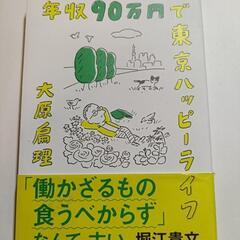 年収90万円で東京ハッピーライフ
大原扁理
「働かざるもの
食うべからず」
なんて古い 堀江貴文